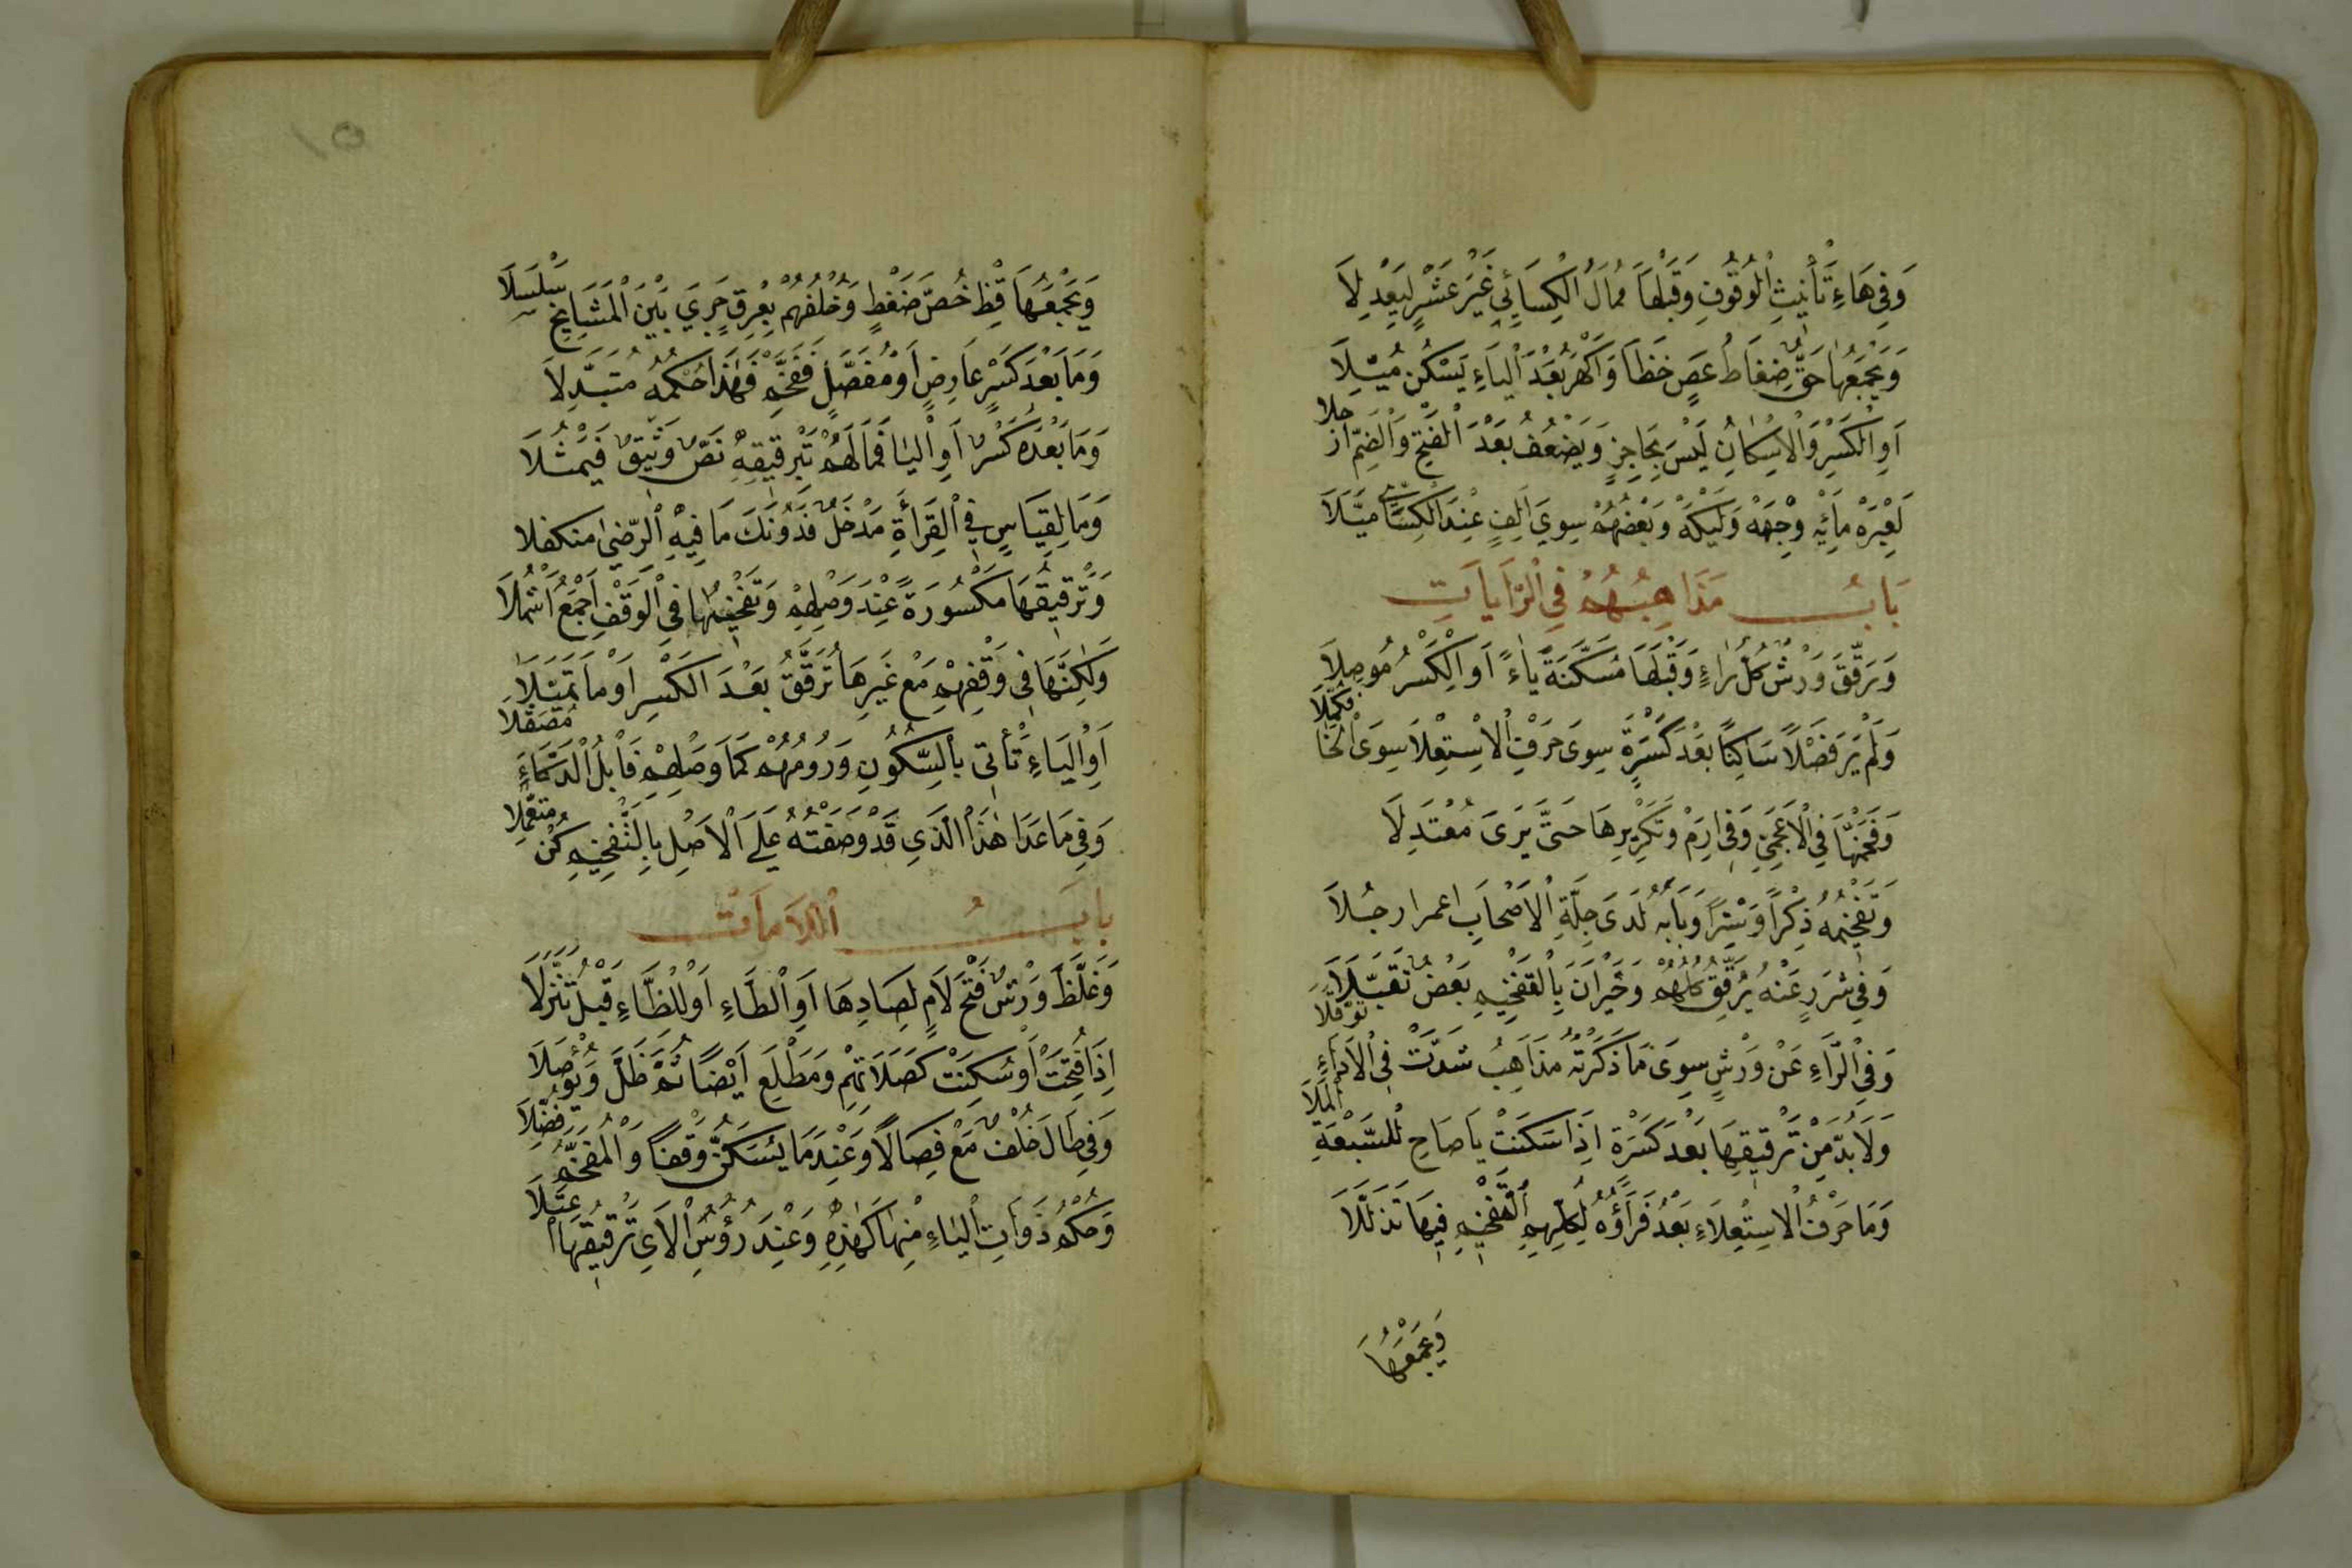 وَفِي هَاءِ تَأْنِيثِ الْوُقُوفِ وَقَبْلَهَا مُمَالُ الْكِسَائِي غَيْرَ عَشْرٍ لِيَعْدِلَا
وَيَجْمَعُهَا حَقٌّ ضِغَاطُ عَصٍ خَظَا وَاَكْهَرُ بَعْدَ الْيَاءِ يَسْكُنُ مُيِّلَا
اَوِ الْكَسْرِ وَالْاِسْكَانُ لَيْسَ بِحَاجِزٍ وَيَضْعُفُ بَعْدَ الْفَتْحِ وَالضَّمِّ ارْجُلَا
لَعِبْرَهْ مِائَهْ وِجْهَهْ وَلَيْكَهْ وَبَعْضُهُمْ سِوَى اَلِفٍ عِنْدَ الْكِسَائِي مَيَّلَا
بَابُ مَذَاهِبُهُمْ فِي الرَّايَاتِ
وَرَقَّقَ وَرْشٌ كُلَّ رَاءٍ وَقَبْلَهَا مُسَكَّنَةً يَاءً اَوِ الْكَسْرُ مُوصِلَا
وَلَمْ يَرَ فَصْلًا سَاكِنًا بَعْدَ كَسْرَةٍ سِوَى حَرْفِ الْاِسْتِعْلَا سِوَى الْخَا فَكَمَّلَا
وَفَخَّمَهَا فِي الْاَعْجَمِيِّ وَفِي اِرَمْ وَتَكْرِيرِهَا حَتَّى يَرَى مُعْتَدِلَا
وَتَفْخِيمُهُ ذِكْرًا وَسِتْرًا وَبَابَهُ لَدَى جِلَّةِ الْاَصْحَابِ اعمر ارجُلَا
وَفِي شَرَرٍ عَنْهُ يُرَقِّقُ كُلُّهُمْ وَحَيْرَانَ بِالتَّفْخِيمِ بَعْضٌ تَقَبَّلَا
وَفِي الرَّاءِ عَنْ وَرْشٍ سِوَى مَا ذَكَرْتُهُ مَذَاهِبُ شَذَّتْ فِي الْاَدَاءِ تَوَقَّلَا
وَلَا بُدَّ مِنْ تَرْقِيقِهَا بَعْدَ كَسْرَةٍ اِذَا سَكَنَتْ يَا صَاحِ لِلسَّبْعَةِ الْمَلَا
وَمَا حَرْفُ الْاِسْتِعْلَاءِ بَعْدُ فَرَاؤُهُ لِكُلِّهِمِ التَّفْخِيمُ فِيهَا تَذَلَّلَا
وَيَجْمَعُهَا
١٥
وَيَجْمَعُهَا قِظْ خُصَّ ضَغْطٍ وَخُلْفُهُمْ بِفِرْقٍ جَرَى بَيْنَ الْمَشَايِخِ سَلْسَلَا
وَمَا بَعْدَ كَسْرٍ عَارِضٍ اَوْ مُفَصَّلٍ فَفَخِّمْ فَهٰذَا حُكْمُهُ مُتَبَدِّلَا
وَمَا بَعْدَهُ كَسْرٌ اَوِ الْيَا فَمَا لَهُمْ بِتَرْقِيقِهِ نَصٌّ وَثِيقٌ فَيَمْثُلَا
وَمَا لِقِيَاسٍ فِي الْقِرَأَةِ مَدْخَلٌ فَدُونَكَ مَا فِيهِ الرِّضَى متكفلا
وَتَرْقِيقُهَا مَكْسُورَةً عِنْدَ وَصْلِهِمْ وَتَفْخِيمُهَا فِي الْوَقْفِ اَجْمَعُ اَشْمُلَا
وَلٰكِنَّهَا فِي وَقْفِهِمْ مَعْ غَيْرِهَا تُرَقَّقُ بَعْدَ الْكَسْرِ اَوْ مَا تَمَيَّلَا
اَوِ الْيَاءِ تَأْتِي بِالسُّكُونِ وَرَوْمُهُمْ كَمَا وَصْلِهِمْ فَابْلُ الذَّكَاءَ مُصَقَّلَا
وَفِي مَا عَدَا هٰذَا الَّذِي قَدْ وَصَفْتُهُ عَلَى الْاَصْلِ بِالتَّفْخِيمِ كُنْ مُتَعَمِّلَا
بابُ اللَّامَاتْ
وَغَلَّظَ وَرْشٌ فَتْحَ لَامٍ لِصَادِهَا اَوِ الطَّاءِ اَوْ لِلظَّاءِ قَبْلُ تَنَزَّلَا
اِذَا فُتِحَتْ اَوْ سُكِنَتْ كَصَلَاتِهِمْ وَمَطْلَعِ اَيْضًا ثُمَّ ظَلَّ وَيُوصَلَا
وَفِي طَالَ خُلْفٌ مَعْ فِصَالًا وَعِنْدَمَا يُسَكَّنُ وَقْفًا وَالْمُفَخَّمُ فُضِّلَا
وَحُكْمُ ذَوَاتِ الْيَاءِ مِنْهَا كَهٰذِهِ وَعِنْدَ رُؤُسِ الْاَيِ تَرْقِيقُهَا اعْتَلَا